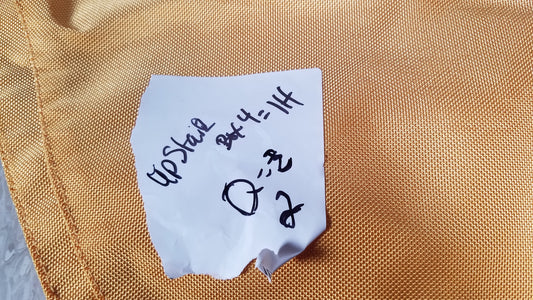 UpStair
Box 4 = 14
Q =
2